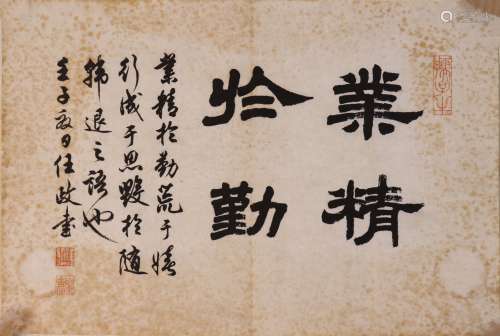 業精
於勤
業精於勤荒于嬉
行成于思毀於隨
韓退之語也
壬子夏日任政書